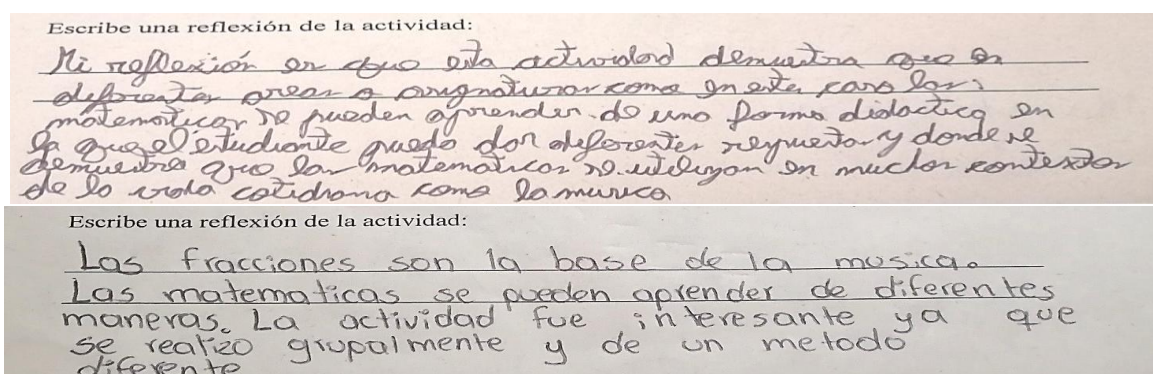 Escribe una reflexión de la actividad:
Mi reflexión es que esta actividad demuestra que en
diferentes areas o asignaturas como en este caso las
matematicas se pueden aprender de una forma didactica en
la que el estudiante puede dar diferentes respuestas y donde se
demuestra que las matematicas se utilizan en muchos contextos
de la vida cotidiana como la musica
Escribe una reflexión de la actividad:
Las fracciones son la base de la musica.
Las matematicas se pueden aprender de diferentes
maneras. La actividad fue interesante ya que
se realizo grupalmente y de un metodo
diferente